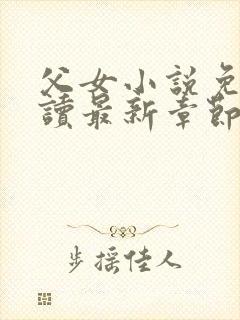 父女小說免
讀最新章節
步摇佳人